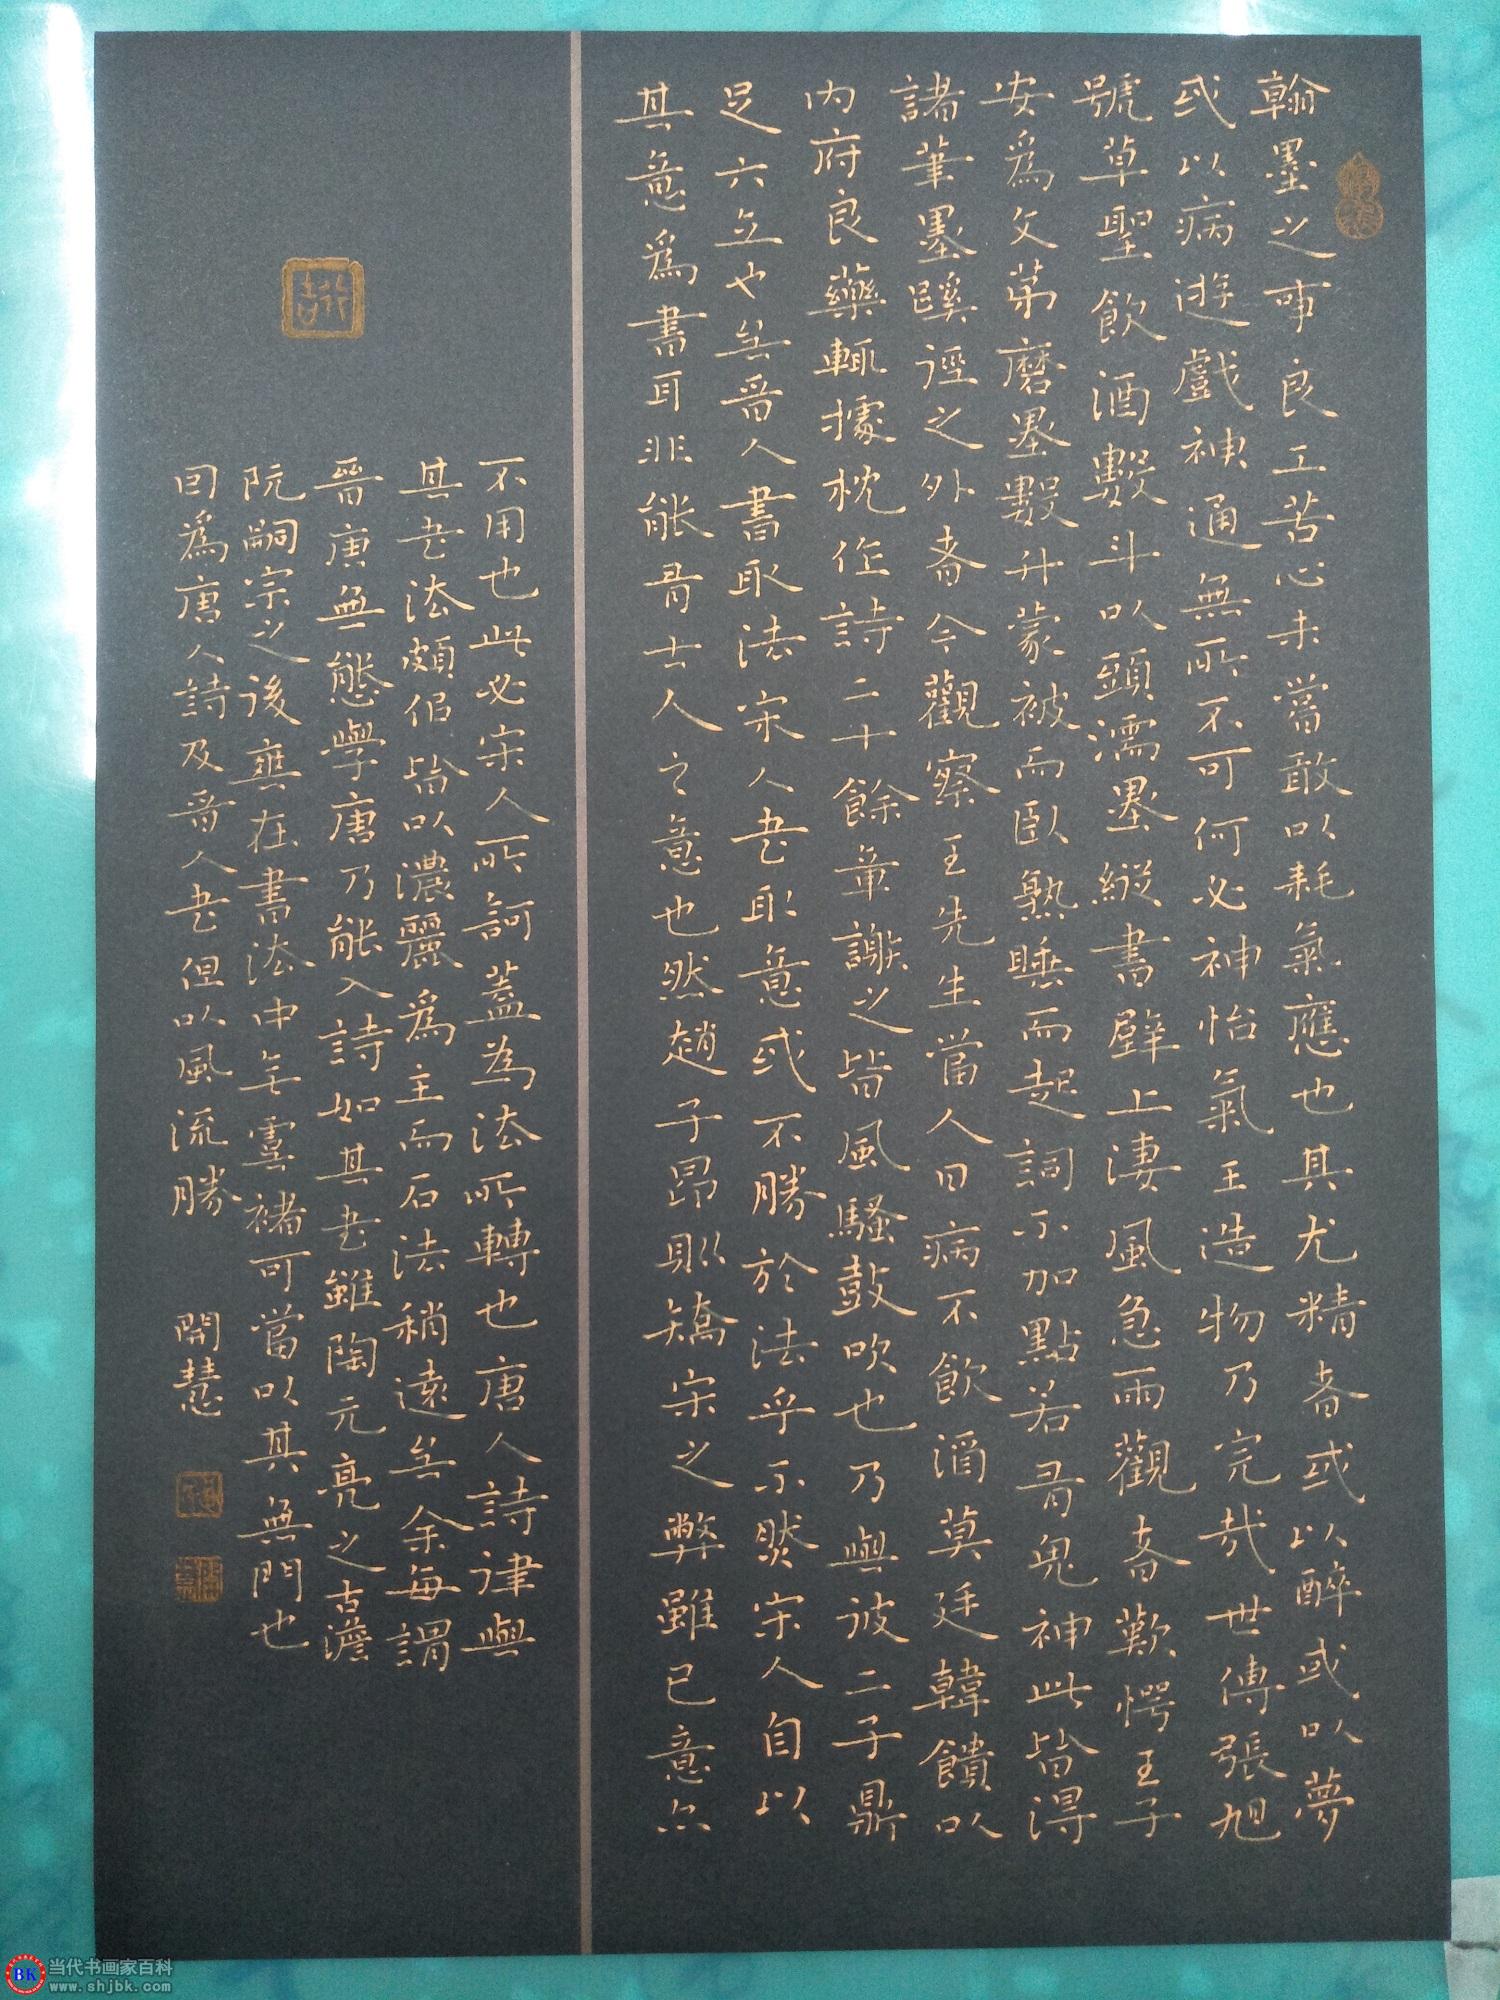 翰墨之事良工苦心未嘗敢以耗氣應也其尤精者或以醉或以夢
或以病遊戲神通無所不可何必神怡氣王造物乃完哉世傳張旭
號草聖飲酒數斗以頭濡墨縱書壁上淒風急雨觀者歎愕王子
安為文每磨墨數升蒙被而臥熟睡而起詞不加點若有鬼神此皆得
諸筆墨蹊徑之外者今觀察王先生當人日病不飲酒莫廷韓饋以
內府良藥輒據枕作詩二十餘章謝之皆風騷鼓吹也乃與彼二子鼎
足六立也晉人書取法宋人書取意或不勝於法乎不然宋人自以
其意為書耳非能有古人之意也然趙子昂則矯宋之弊雖已意亦
不用也此必宋人所訶蓋為法所轉也唐人詩律與
其書法頗似皆以濃麗為主而石法稍遠矣余每謂
晉唐無態學唐乃能入詩如其書雖陶元亮之古澹
阮嗣宗之後無在書法中虞褚可當以其無門也
因為唐人詩及晉人書但以風流勝 開慧
当代书画家百科
www.shjbk.com
BK